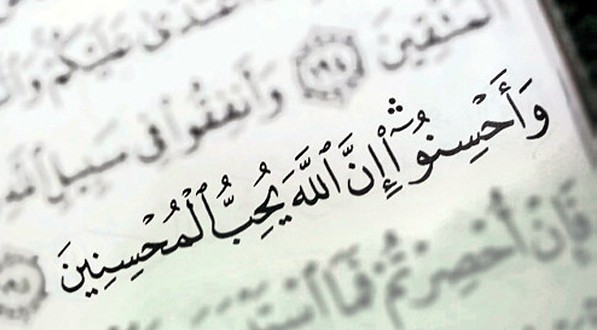 عْتَدَىٰ عَلَيْكُمْ وَٱتَّ
ٱلْمُتَّقِينَ ١٩٤ وَأَنفِقُوا۟ فِى سَبِيلِ ٱللَّهِ
وَأَحْسِنُوٓا۟ ۛ إِنَّ ٱللَّهَ يُحِبُّ ٱلْمُحْسِنِينَ ١٩٥
فَإِنْ أُحْصِرْتُمْ فَمَا ٱسْتَيْسَرَ